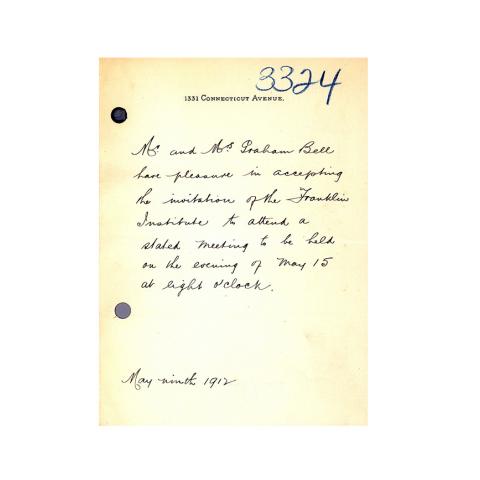 3324
1331 CONNECTICUT AVENUE.
Mr. and Mrs Graham Bell
have pleasure in accepting
the invitation of the Franklin
Institute to attend a
stated meeting to be held
on the evening of May 15
at eight o'clock.
May ninth 1912